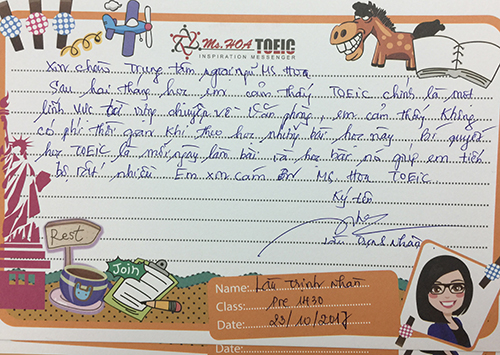 Ms. HOA TOEIC
INSPIRATION MESSENGER
Xin chào Trung tâm ngoại ngữ Ms Hoa
Sau hai tháng học em cảm thấy TOEIC chính là một
lĩnh vực từ vựng chuyên về Văn phòng, em cảm thấy không
có phí thời gian khi theo học những bài học này. Bí quyết
học TOEIC là mỗi ngày làm bài và học bài nó giúp em tiến
bộ rất nhiều Em xin cám ơn Ms. Hoa TOEIC
Ký tên
Trịnh Nhàn
Rest
Join
Name: Trịnh Nhàn
Class: Pre 1H30
Date: 23/10/2017
Date: